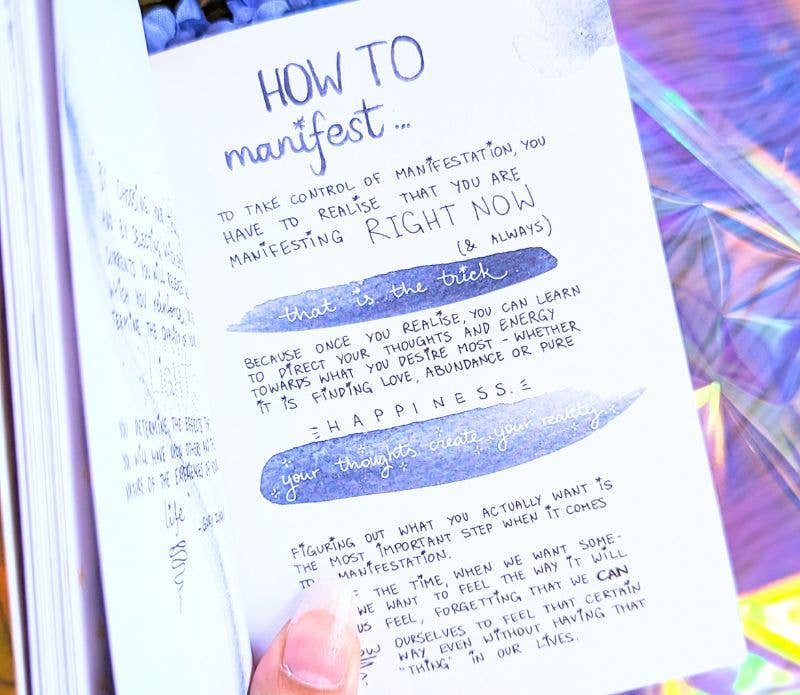 BY CHOOSING YOUR
AND BY SELECTING WHICH
CURRENTS YOU WILL RELEASE
WHICH YOU
THE QUALITY OF YOUR
LIGHT
DETERMINE THE EFFECTS
WILL HAVE UPON OTHERS AND THE
OF THE EXPERIENCES OF YOUR
life
HOW TO
manifest...
TO TAKE CONTROL OF MANIFESTATION, YOU
HAVE TO REALISE THAT YOU ARE
MANIFESTING RIGHT NOW
(& ALWAYS)
that is the trick.
BECAUSE ONCE YOU REALISE, YOU CAN LEARN
TO DIRECT YOUR THOUGHTS AND ENERGY
TOWARDS WHAT YOU DESIRE MOST - WHETHER
IT IS FINDING LOVE, ABUNDANCE OR PURE
HAPPINESS.
your thoughts create your reality.
FIGURING OUT WHAT YOU ACTUALLY WANT IS
THE MOST IMPORTANT STEP WHEN IT COMES
TO MANIFESTATION.
THE TIME, WHEN WE WANT SOME-
WE WANT TO FEEL THE WAY IT WILL
US FEEL, FORGETTING THAT WE CAN
OURSELVES TO FEEL THAT CERTAIN
WAY EVEN WITHOUT HAVING THAT
"THING" IN OUR LIVES.